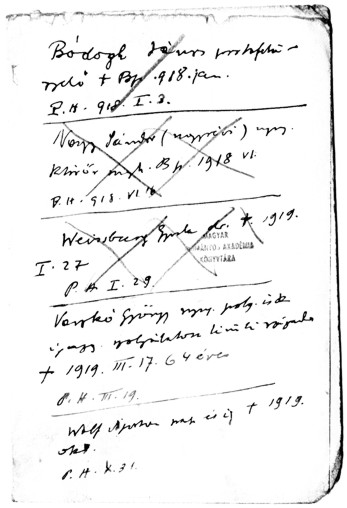 Bódogh János postafelü-
gyelő † Bp. 918. jan.
P. H. 918 I. 3.
Nagy Sándor (nagyrévi) nyug.
Bp. 1918 VI.
P. H. 918. VI. 16
Weissburg Gyula dr. † 1919.
I. 27
P. H. I. 29.
MAGYAR
TUDOMÁNYOS AKADÉMIA
KÖNYVTÁRA
Vaszkó György nyug. polg. isk
igazg.
† 1919. III. 17. 64 éves
P. H. III. 19.
Wolf † 1919.
okt.
P. H. X. 31.